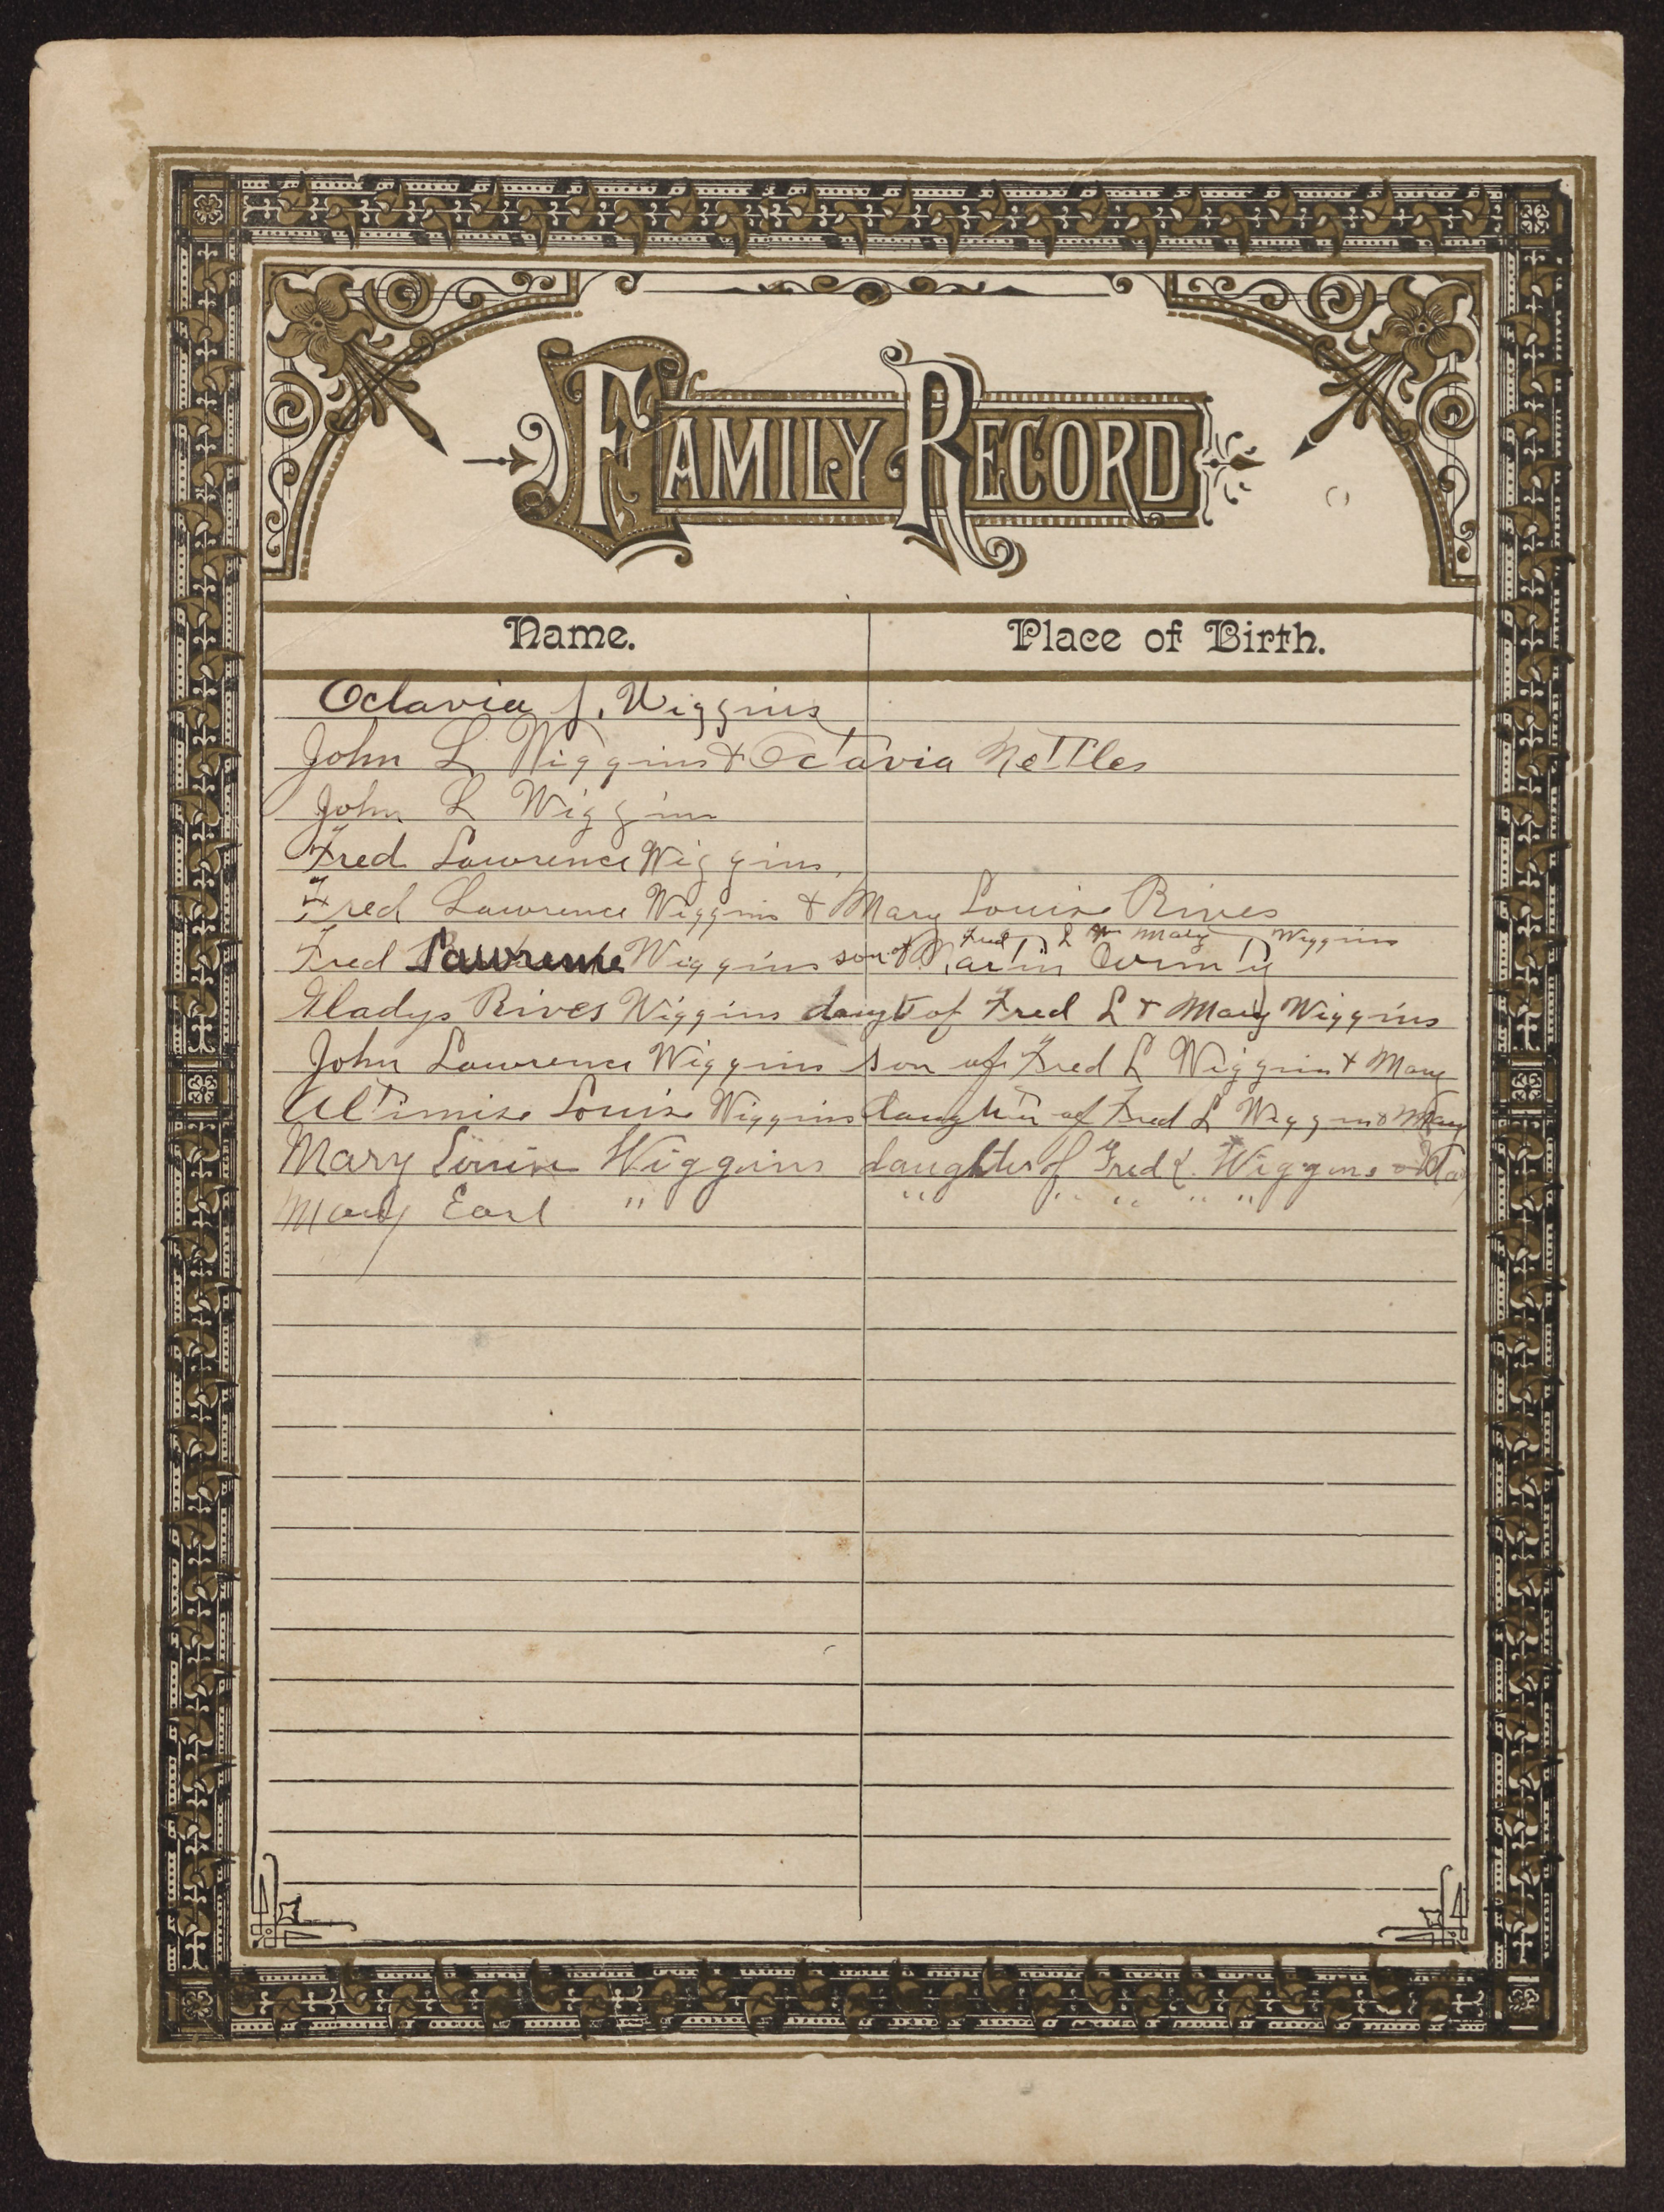 FAMILY RECORD
Name. Place of Birth.
Octavia J. Wiggins
John L Wiggins & Octavia Nettles
John L Wiggins
Fred Lawrence Wiggins,
Fred Lawrence Wiggins & Mary Louise Rives
Fred L Mary Wiggins
Fred Lawrence Wiggins son of Martin County
Gladys Rives Wiggins daught of Fred L & Mary Wiggins
John Lawrence Wiggins son of Fred L Wiggins & Mary
Altimise Louise Wiggins daughter of Fred L Wiggins & Mary
Mary Louise Wiggins daughter of Fred L. Wiggins & Mary
Mary Earl " " " " " "